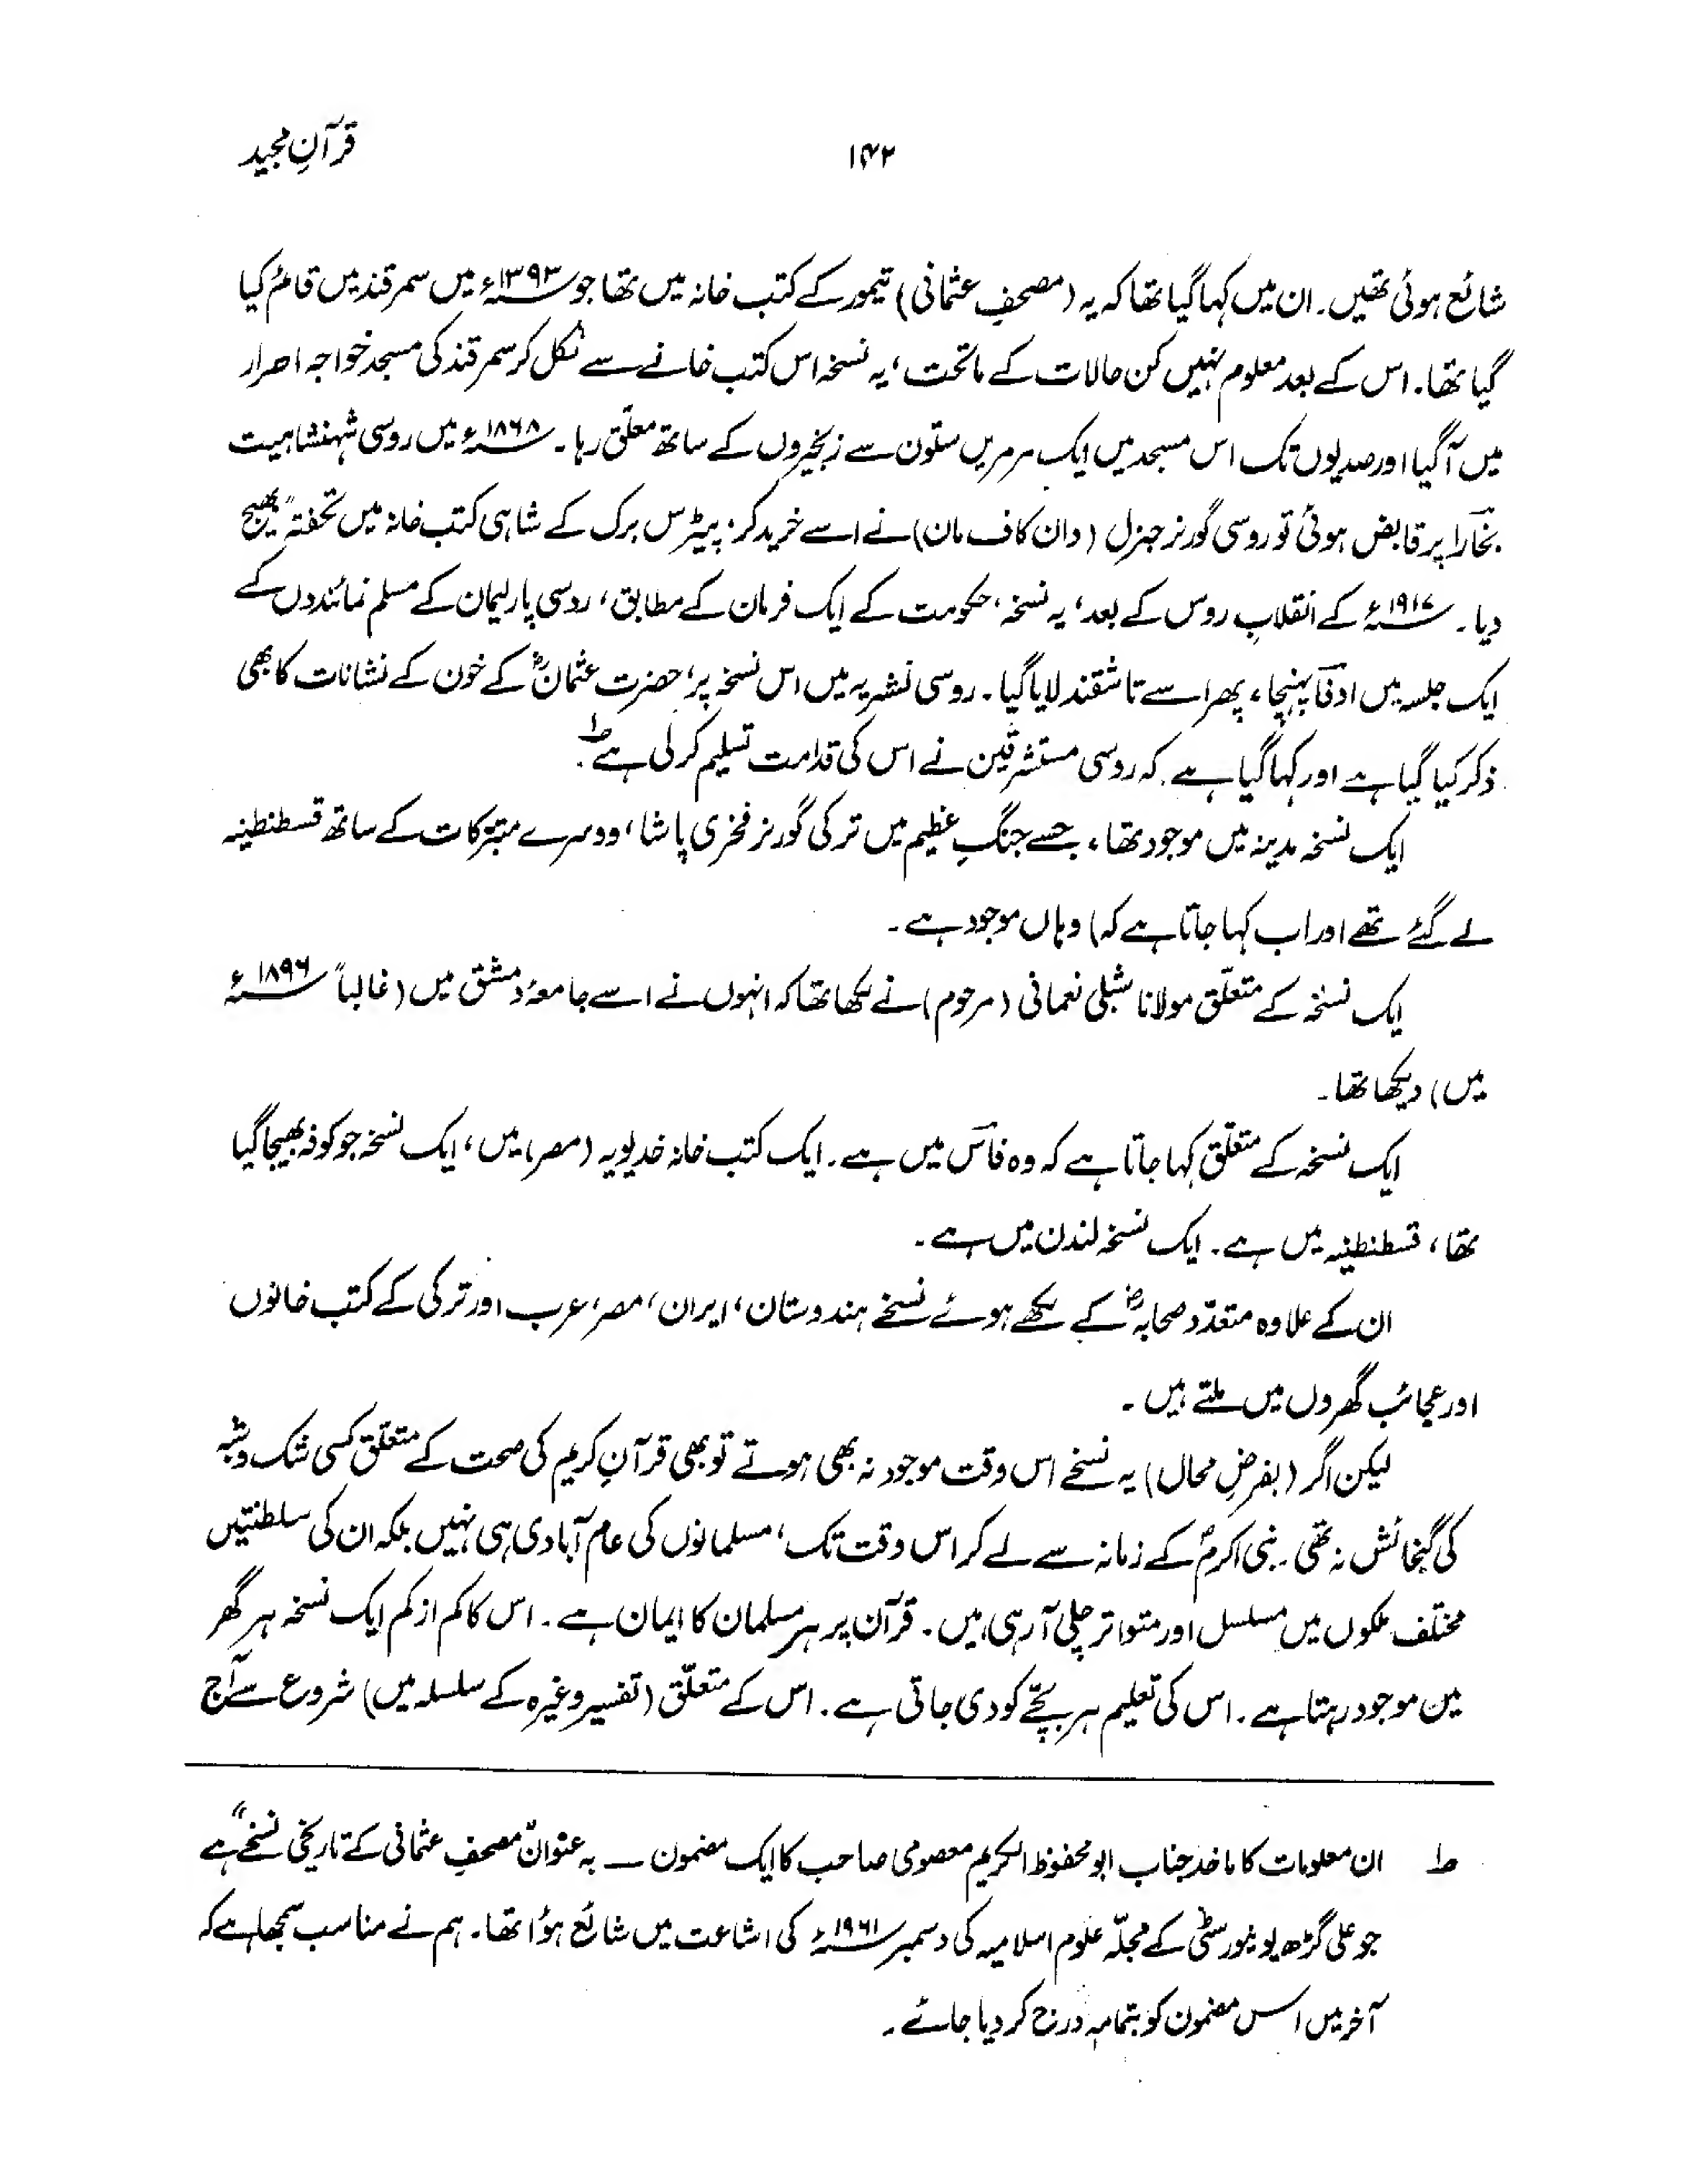 قرآنِ مجید
۱۴۲
شائع ہوئی تھیں۔ ان میں کہا گیا تھا کہ یہ (مصحفِ عثمانی) تیمور کے کتب خانہ میں تھا جو ۱۳۹۳ء میں سمرقند میں قائم کیا
گیا تھا۔ اس کے بعد معلوم نہیں کن حالات کے ماتحت، یہ نسخہ اس کتب خانے سے نکل کر سمرقند کی مسجد خواجہ احرار
میں آ گیا اور صدیوں تک اس مسجد میں ایک مرمریں ستون سے زنجیروں کے ساتھ معلّق رہا۔ ۱۸۶۸ء میں روسی شہنشاہیت
بخارا پر قابض ہوئی تو روسی گورنر جنرل (دان کاف مان) نے اسے خرید کر، پیٹرس برگ کے شاہی کتب خانہ میں تحفتہً بھیج
دیا۔ ۱۹۱۷ء کے انقلابِ روس کے بعد، یہ نسخہ، حکومت کے ایک فرمان کے مطابق، روسی پارلیمان کے مسلم نمائندوں کے
ایک جلسہ میں اوفا پہنچا، پھر اسے تاشقند لایا گیا۔ روسی نشریہ میں اس نسخہ پر، حضرت عثمانؓ کے خون کے نشانات کا بھی
ذکر کیا گیا ہے اور کہا گیا ہے کہ روسی مستشرقین نے اس کی قدامت تسلیم کر لی ہے۔ ؎۱
ایک نسخہ مدینہ میں موجود تھا، جسے جنگِ عظیم میں ترکی گورنر فخری پاشا، دوسرے متبرّکات کے ساتھ قسطنطنیہ
لے گئے تھے اور اب کہا جاتا ہے کہ) وہاں موجود ہے۔
ایک نسخہ کے متعلّق مولانا شبلی نعمانی (مرحوم) نے لکھا تھا کہ انہوں نے اسے جامعۂ دمشق میں (غالباً ۱۸۹۶ء
میں) دیکھا تھا۔
ایک نسخہ کے متعلّق کہا جاتا ہے کہ وہ فاس میں ہے۔ ایک کتب خانہ خدیویہ (مصر) میں، ایک نسخہ جو کوفہ بھیجا گیا
تھا، قسطنطنیہ میں ہے۔ ایک نسخہ لندن میں ہے۔
ان کے علاوہ متعدّد صحابہؓ کے لکھے ہوئے نسخے ہندوستان، ایران، مصر، عرب اور ترکی کے کتب خانوں
اور عجائب گھروں میں ملتے ہیں۔
لیکن اگر (بفرضِ محال) یہ نسخے اس وقت موجود نہ بھی ہوتے تو بھی قرآنِ کریم کی صحت کے متعلّق کسی شک و شبہ
کی گنجائش نہ تھی۔ نبی اکرمؐ کے زمانہ سے لے کر اس وقت تک، مسلمانوں کی عام آبادی ہی نہیں بلکہ ان کی سلطنتیں
مختلف ملکوں میں مسلسل اور متواتر چلی آ رہی ہیں۔ قرآن پر ہر مسلمان کا ایمان ہے۔ اس کا کم از کم ایک نسخہ ہر گھر
میں موجود رہتا ہے۔ اس کی تعلیم ہر بچّے کو دی جاتی ہے۔ اس کے متعلّق (تفسیر وغیرہ کے سلسلہ میں) شروع سے آج
؎۱ ان معلومات کا ماخذ جناب ابو محفوظ الکریم معصومی صاحب کا ایک مضمون — بہ عنوان "مصحفِ عثمانی کے تاریخی نسخے" ہے
جو علی گڑھ یونیورسٹی کے مجلّہ علوم اسلامیہ کی دسمبر ۱۹۶۱ء کی اشاعت میں شائع ہؤا تھا۔ ہم نے مناسب سمجھا ہے کہ
آخر میں اس مضمون کو بتمامہٖ درج کر دیا جائے۔